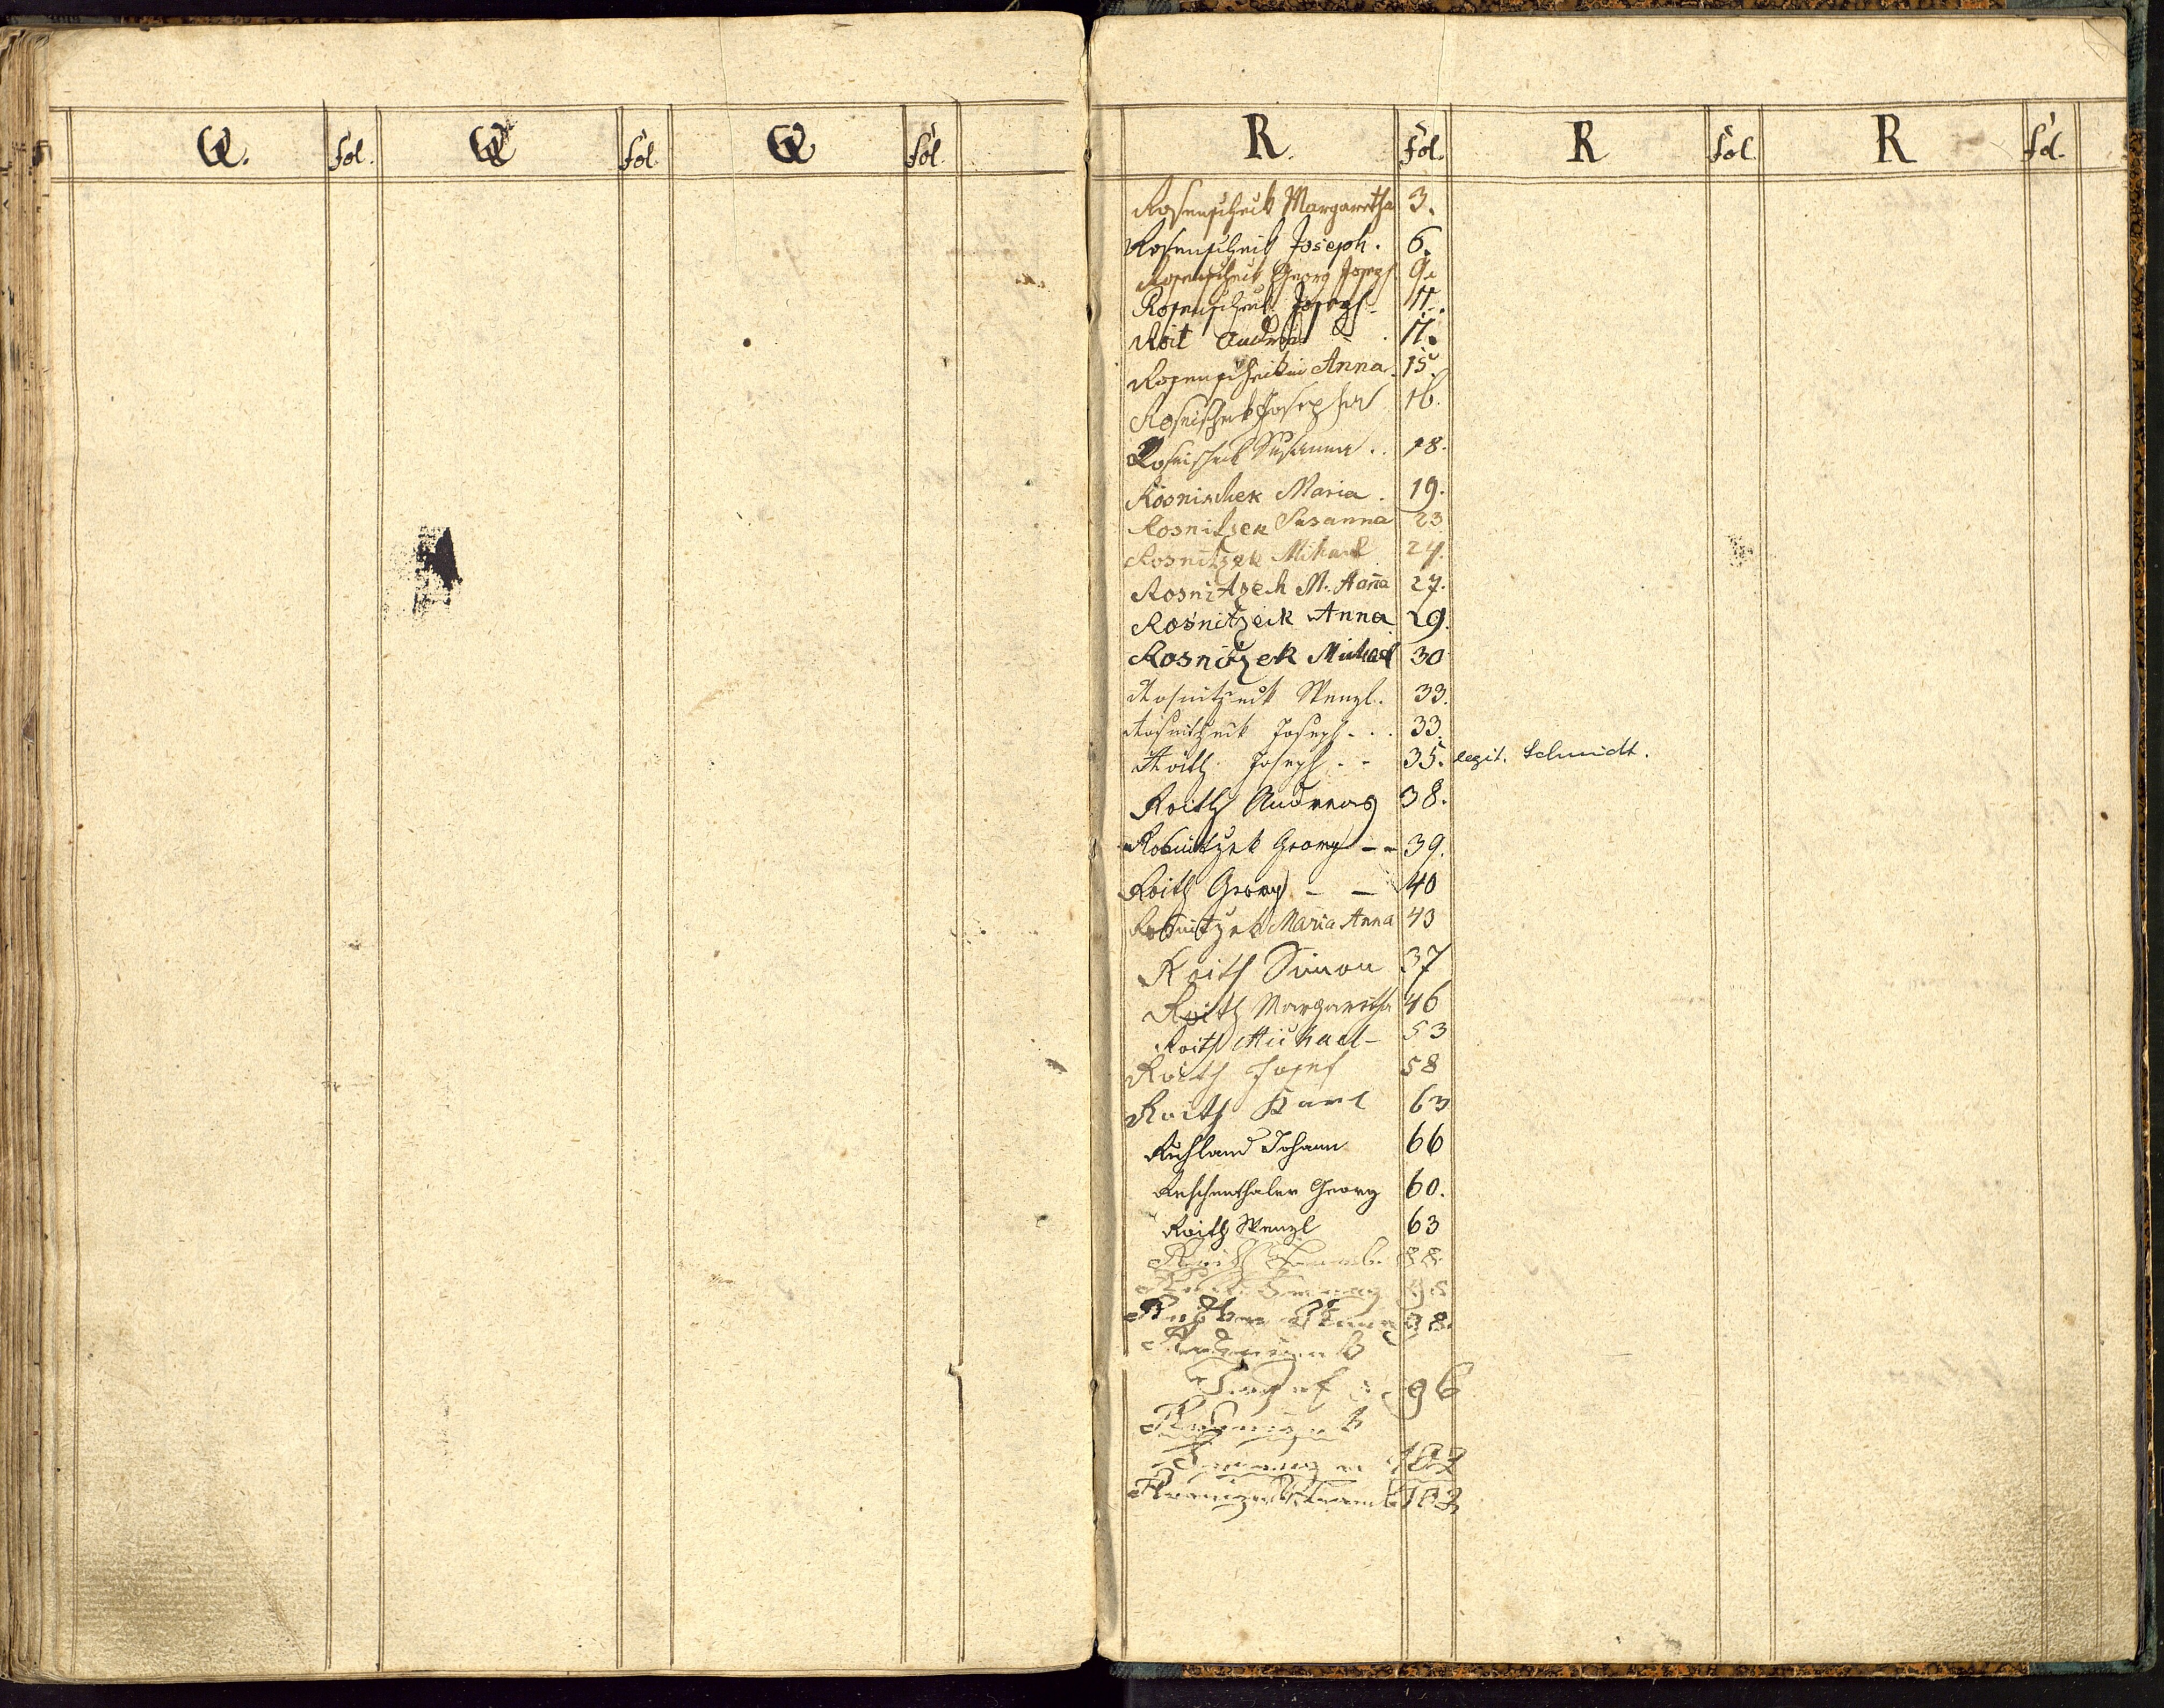 Q. fol. Q fol. Q fol.
R. fol. R fol. R fol.
Rosenscheck Margaretha 3.
Rosenscheck Joseph. 6.
Rosenscheck Georg Joseph 9.
Rosenscheck Joseph 11.
Roit Andreas 11.
Rosenscheckin Anna. 15.
Rosnischek Josepha 16.
Rosnischek Susanna .. 18.
Rosnischek Maria. 19.
Rosnitzek Susanna 23
Rosnitzek Mihael 24.
Rosnitzeck M. Aña 27.
Rosnitzeik Anna 29.
Rosnitzek Michael 30
Rosnitzeck Wenzl. 33.
Rosnitzeck Joseph - .. 33.
Roith Joseph - - 35. legit. Schmidt.
Roith Andreas 38.
Rosnitzek Georg - - 39.
Roith Georg - - 40
Rosnitzek Maria Anna 43
Roith Simon 37
Roith Margaretha 46
Roith Michael - 53
Roith Josef 58
Roith Karl 63
Ruhland Johann 66
Reschenthaler Georg 60.
Roith Wenzl 63
Roith 88
98.
Josef 96
102